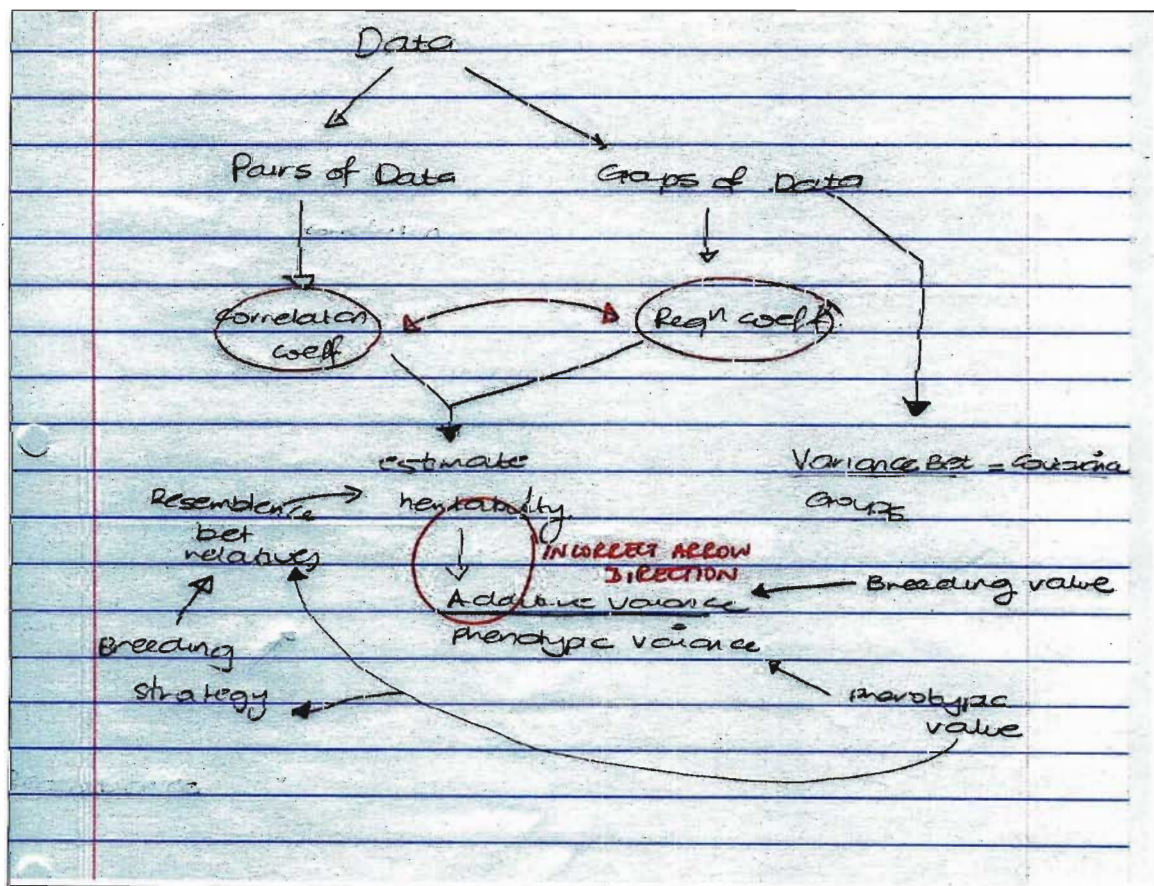 Data
Pairs of Data
Groups of Data
Correlation
coeff
Regn coeff
estimate
heritability
Variance Bet =
Groups
Resemblence
bet
relatives
INCORRECT ARROW
DIRECTION
Additive variance
phenotypic variance
Breeding value
Breeding
strategy
phenotypic
value